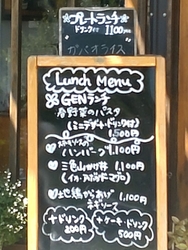 プレートランチ
ドリンク付 1,100円
ガパオライス
Lunch Menu
GENランチ
春野菜のパスタ
(ミニデザート・ドリンク付)
1,500円
ハンバーグ 1,100円
三色山かけ丼 1,100円
(イカ・アボカド・マグロ)
地鶏からあげ 1,100円
ネギソース
+ドリンク 200円
+ケーキ・ドリンク 500円